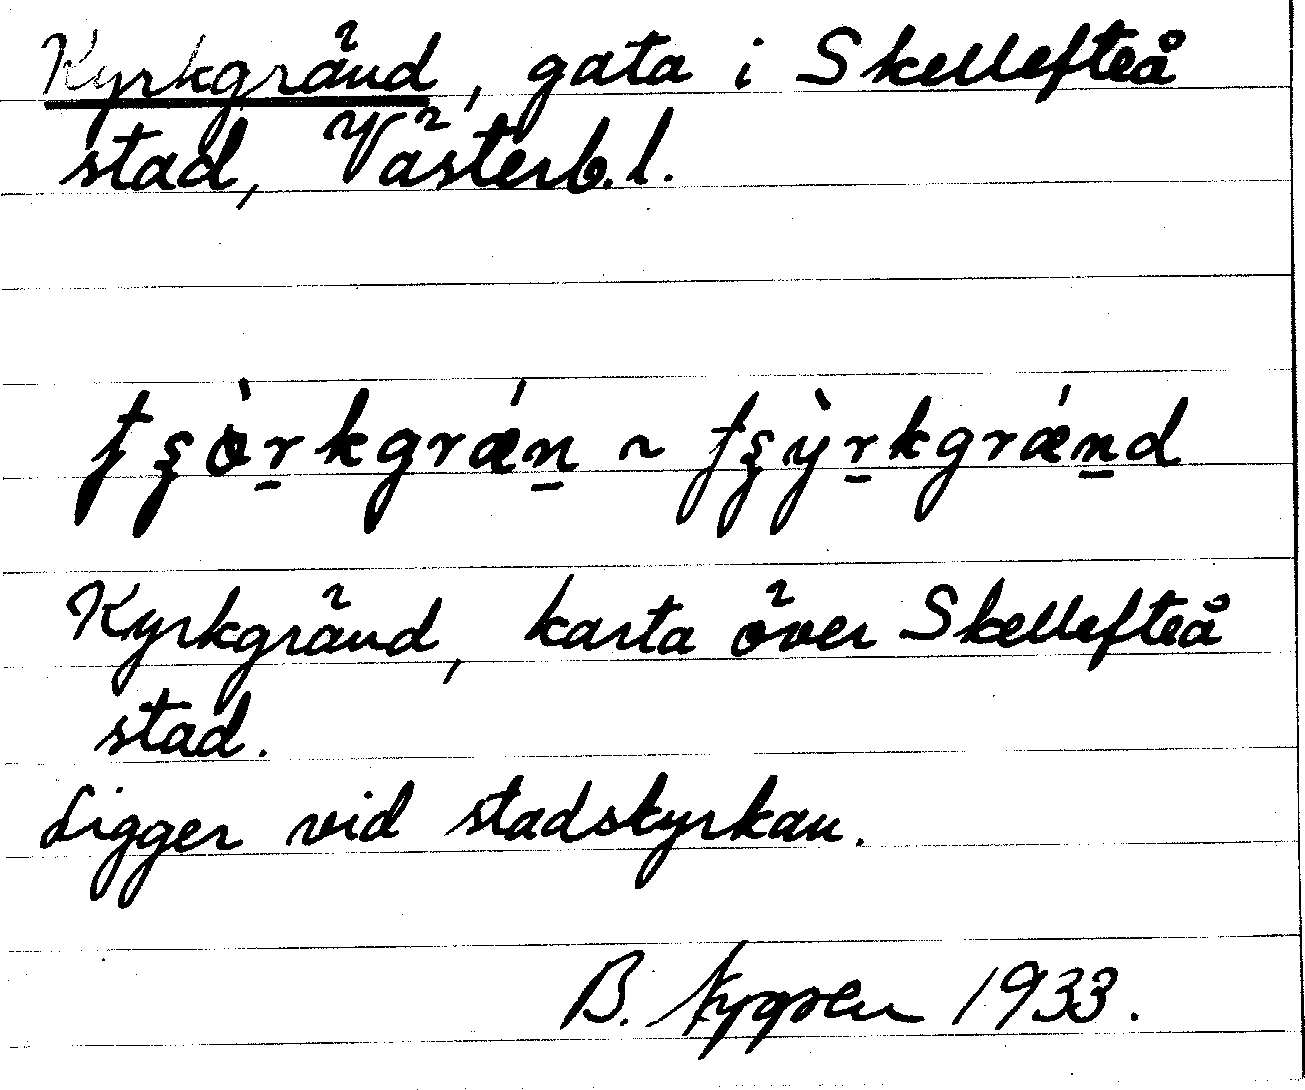 Kyrkgränd, gata i Skellefteå
stad, Västerb.l.
ʈʂò̱rkgrǽn̠ ~ ʈʂỳr̠kgrǽn̠d
Kyrkgränd, karta över Skellefteå
stad.
Ligger vid stadskyrkan.
B. Nygren 1933.